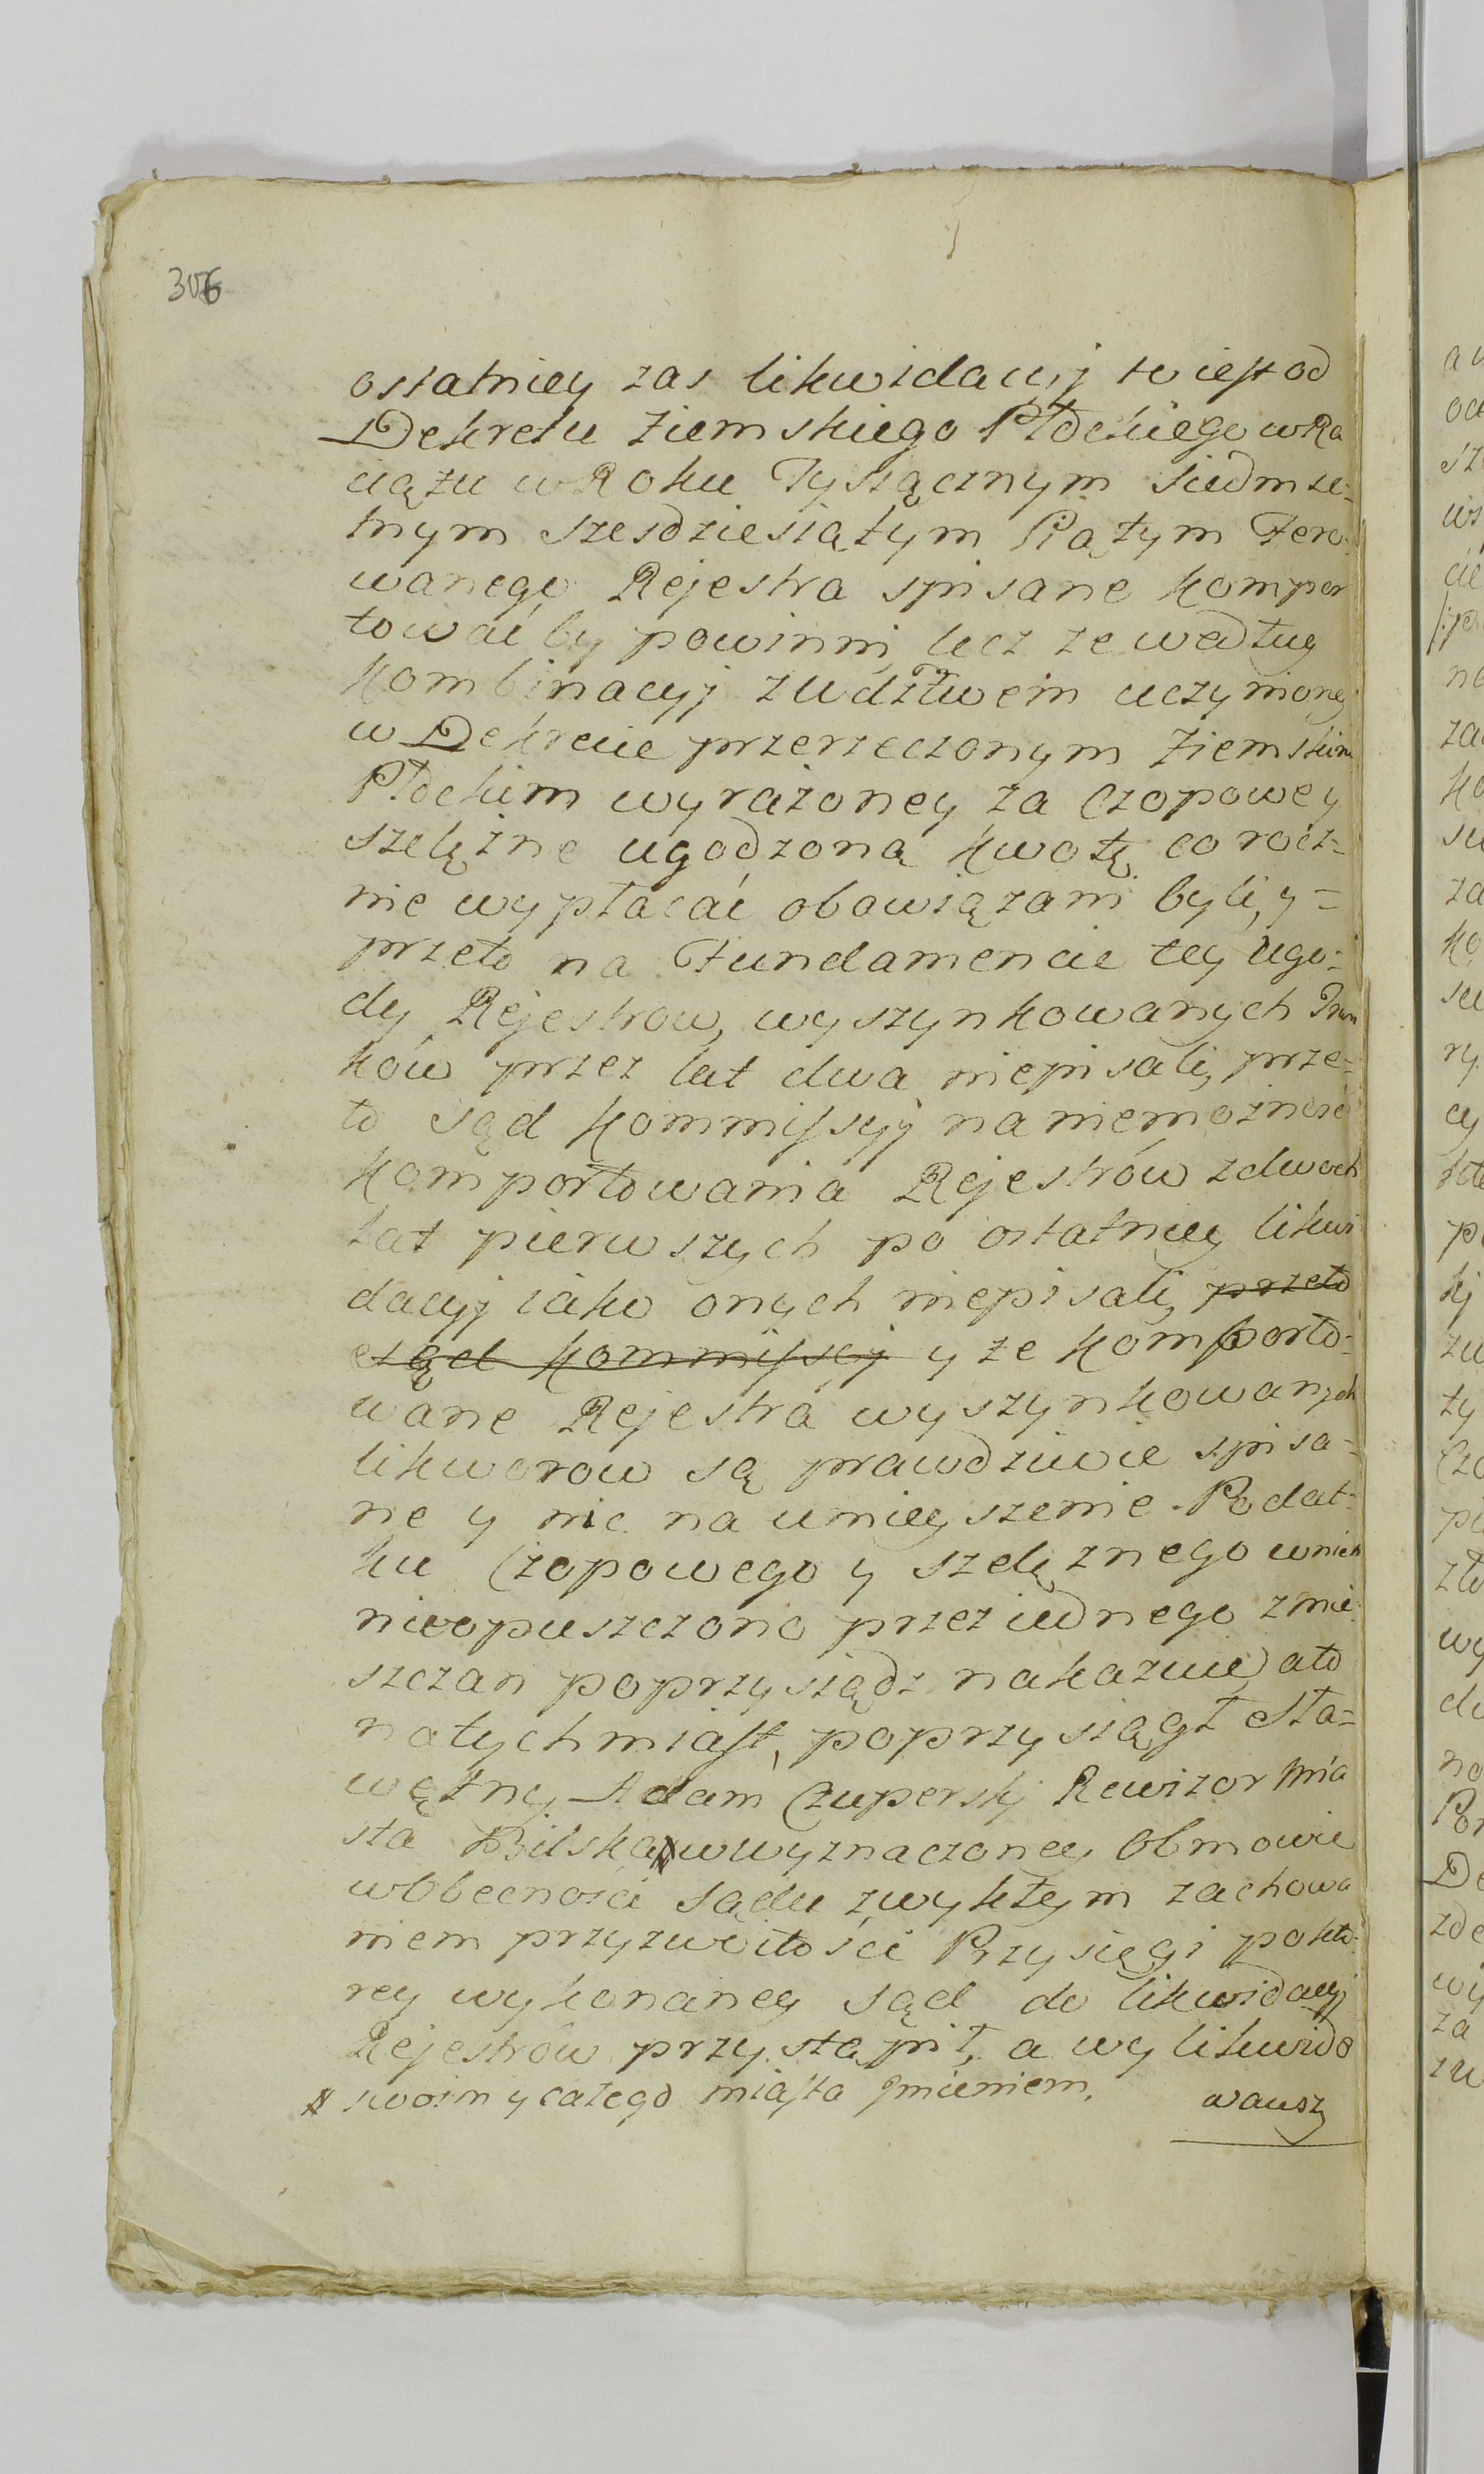 306
ostatniey zas likwidacyj to iest od
Dekretu Ziemskiego Płockiego w Ra
ciążu w Roku Tysiącznym siedmse-
tnym szesdziesiątym Piątym Fero-
wanego Rejestra spisane kompor
towac by powinni, lecz ze według
kombinacyj z Xdztwem uczynioney
w Dekrecie przerzeczonym Ziemskim
Płockim wyrażoney za Czopowe y
szelężne ugodzoną kwotę corocz-
nie wypłacać obowiązani byli, y =
przeto na Fundamencie tey ugo-
dy Rejestrow, wyszynkowanych Trun
ków przez lat dwa niepisali, prze-
to sąd kommissyj na niemożnosc
komportowania Rejestrów z dwoch
lat pierwszych po ostatniey likwi
dacyj iako onych niepisali, przeto
sąd kommissyj y ze komporto-
wane Rejestra wyszynkowanych
likworow są prawdziwie spisa-
ne y nic na umieyszenie Podat-
ku Czopowego y szelężnego w nich
nieopuszczono przez iednego z mie-
szczan poprzysiądz nakazuie, a to
natychmiast, poprzysiągł Sła-
wętny Adam Czuperskj Rewizor Mia
sta Bilska w wyznaczoney Obmowie
w Obecnosci sądu zwykłym zachowa
niem przyzwoitości Przysięgi po któ-
rey wykonaney sąd do likwidacyj
Rejestrów przystąpił, a wylikwido
swoim y całego miasta Jmieniem. wawszy